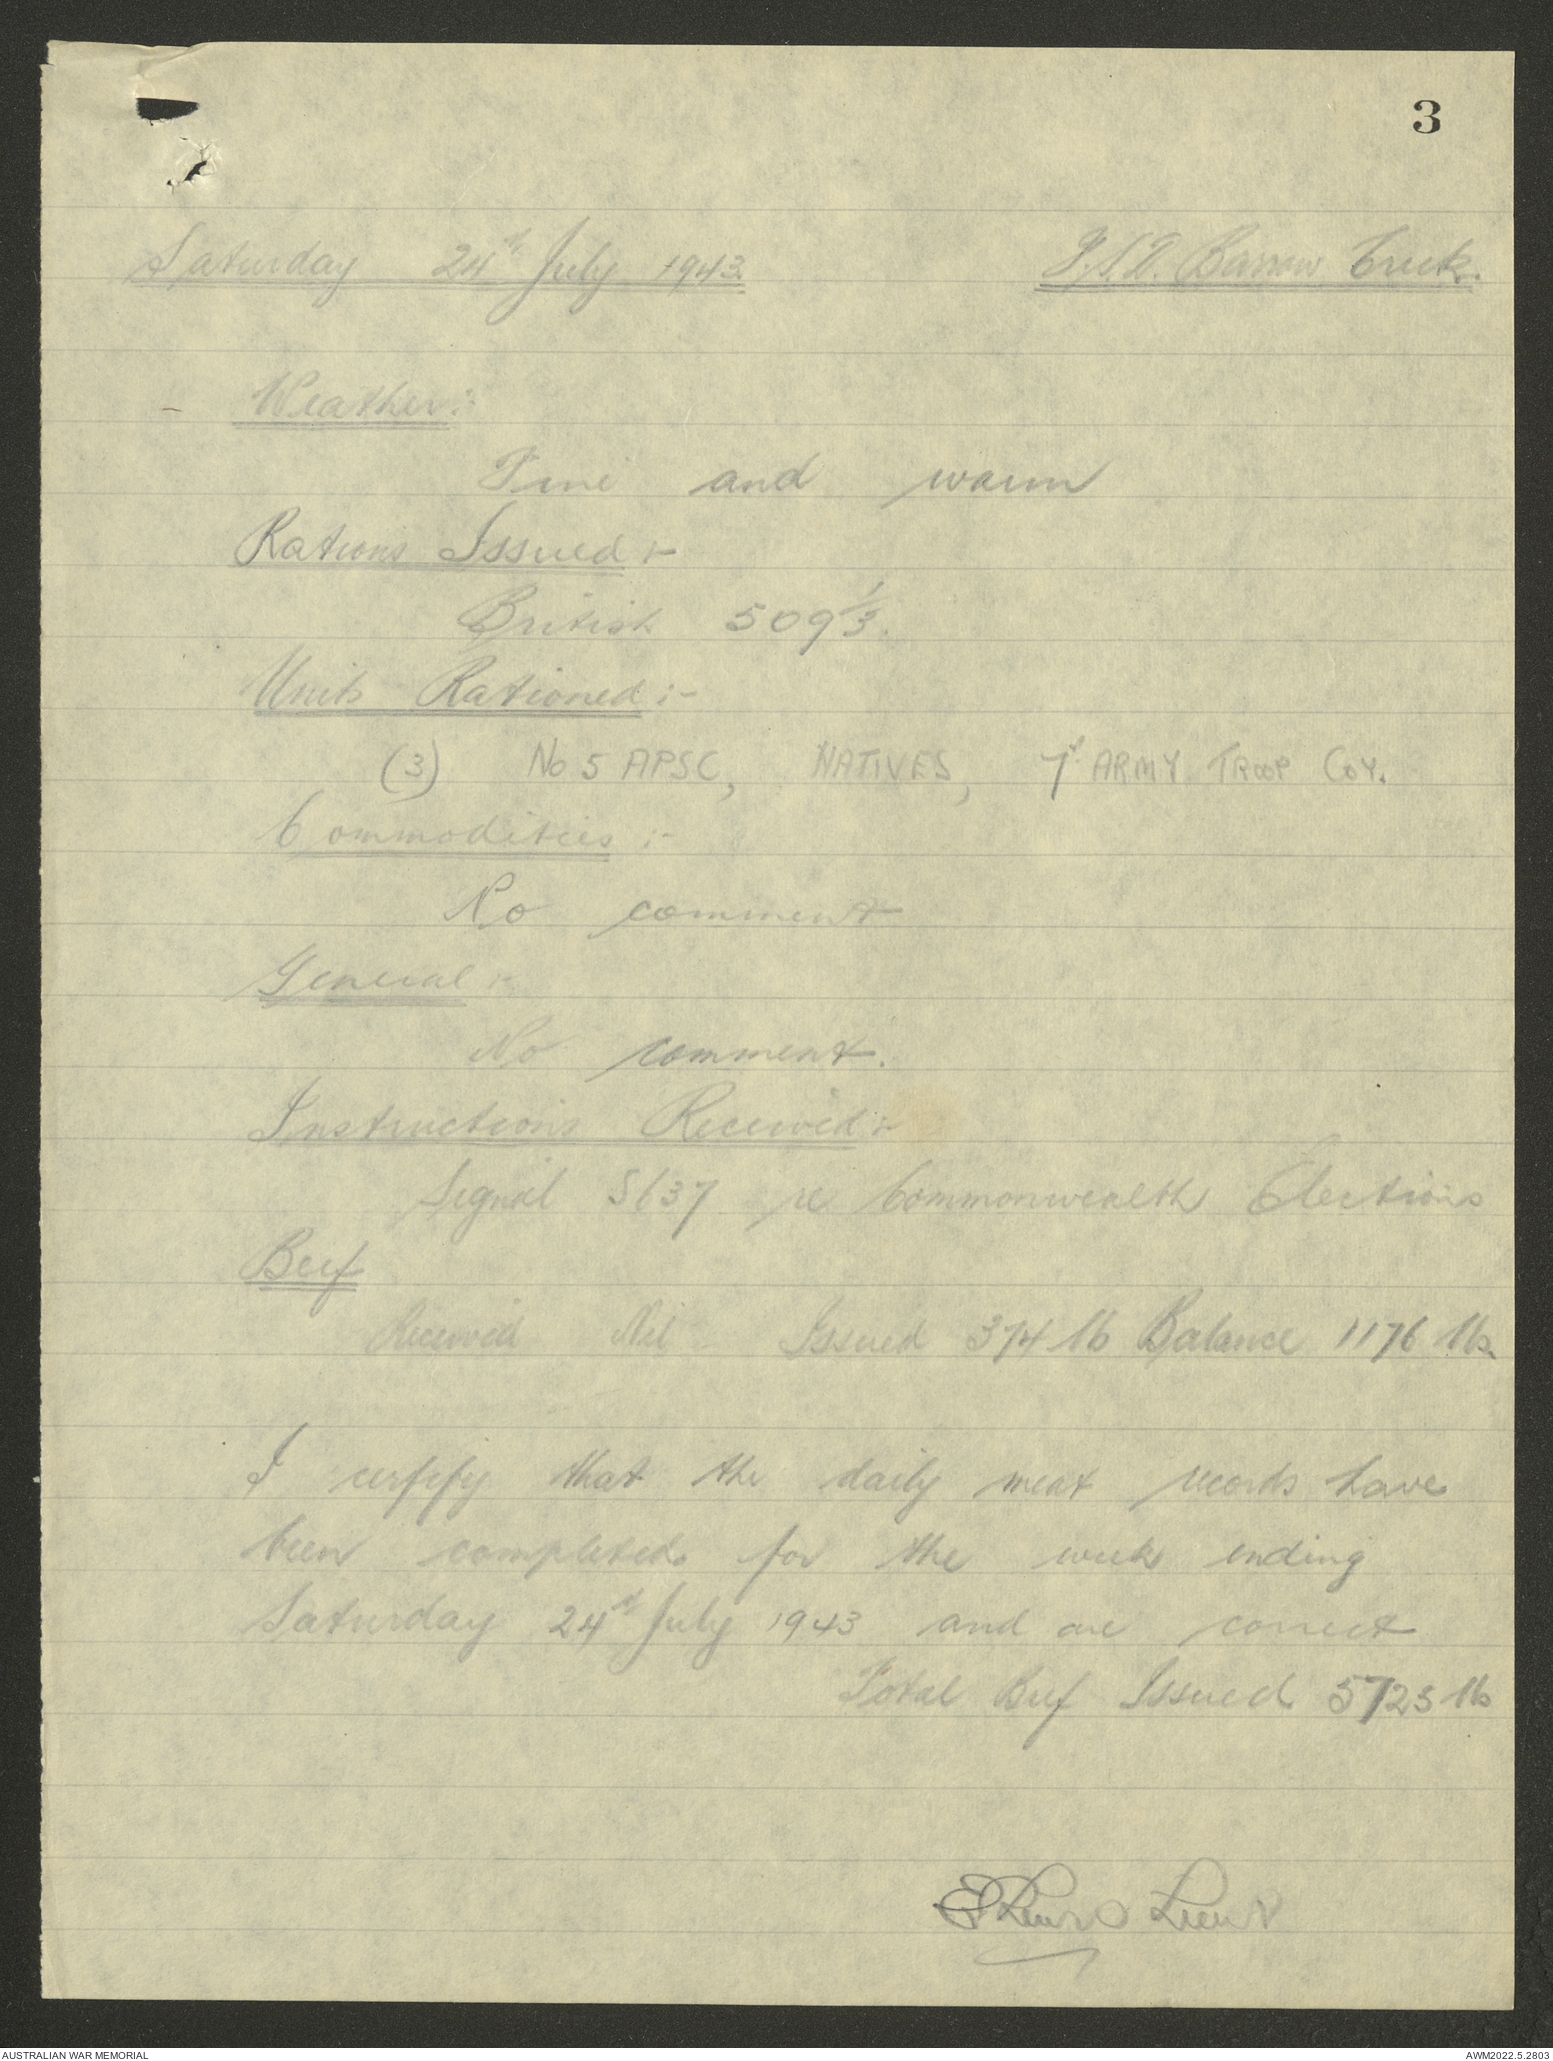 3
Saturday 24th July 1943. F.S.D. Barrow Creek.
Weather:-
Fine and warm
Rations Issued:-
British 509 1/3.
Units Rationed:-
(3) No 5 APSC, NATIVES, ARMY TROOP COY.
Commodities:-
No comment
General:-
No comment.
Instructions Received:-
Signal S637 re Commonwealth Elections
Beef
Received Nil Issued 374 lb Balance 1176 lbs.
I certify that the daily meat records have
been completed for the week ending
Saturday 24th July 1943 and are correct
Total Beef Issued 5723 lb
Lieut
AUSTRALIAN WAR MEMORIAL AWM2022.5.2803